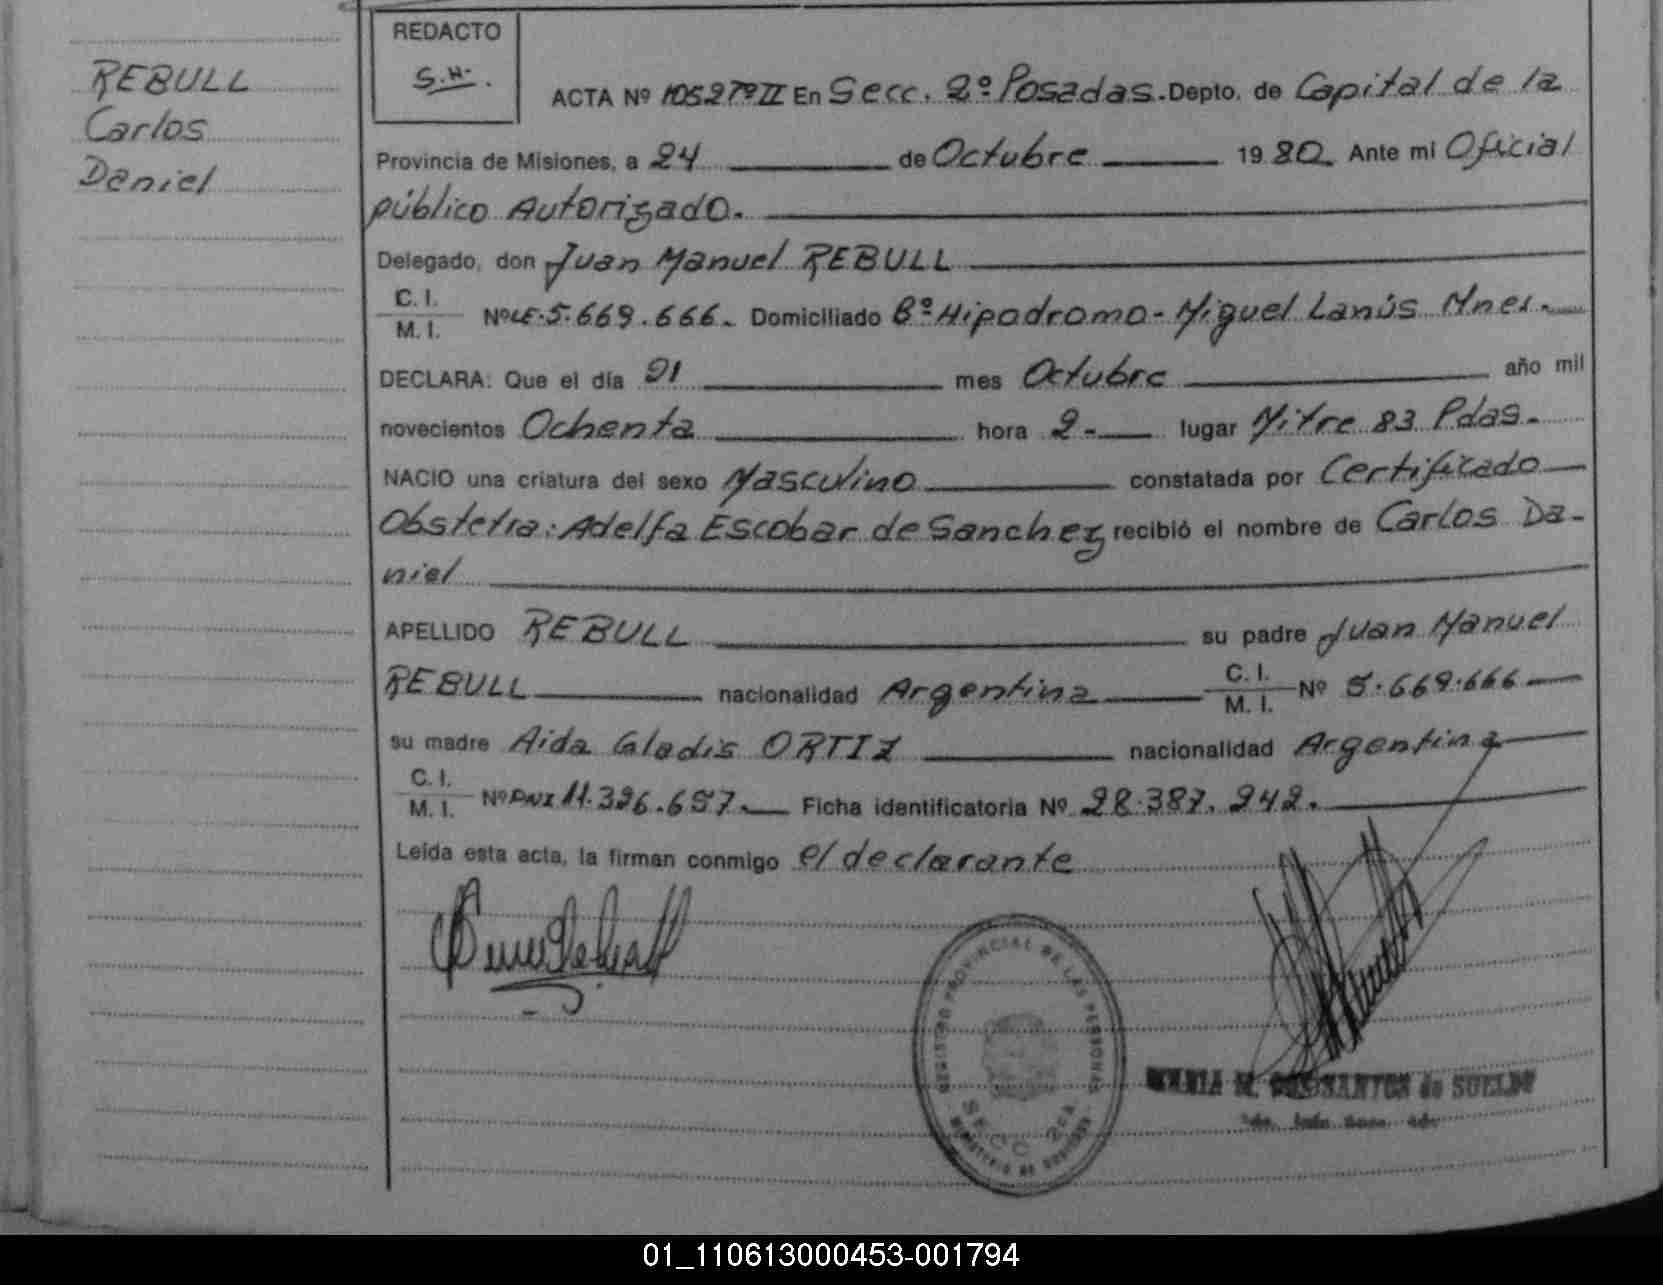 REBULL
Carlos
Daniel
REDACTO
S.H.
ACTA Nº 1052 Tº II En Secc. 2º Posadas. Depto. de Capital de la
Provincia de Misiones, a 24 de Octubre 1980. Ante mi Oficial
público Autorizado.
Delegado, don Juan Manuel REBULL
C. I.
M. I. Nº LE. 5.669.666. Domiciliado Bº Hipodromo - Miguel Lanús Mnes.
DECLARA: Que el día 21 mes Octubre año mil
novecientos Ochenta hora 2- lugar Mitre 83 Pdas.
NACIO una criatura del sexo Masculino constatada por Certificado
Obstetra: Adelfa Escobar de Sanchez recibió el nombre de Carlos Da-
niel
APELLIDO REBULL su padre Juan Manuel
REBULL nacionalidad Argentina C. I. M. I. Nº 5.669.666
su madre Aida Gladis ORTIZ nacionalidad Argentina
C. I.
M. I. Nº DNI 11.396.657. Ficha identificatoria Nº 28.387.242.
Leída esta acta, la firman conmigo el declarante
REGISTRO PROVINCIAL DE LAS PERSONAS
SECC 2da
MINISTERIO DE GOBIERNO
M. DOS SANTOS de SUELDO
01_110613000453-001794